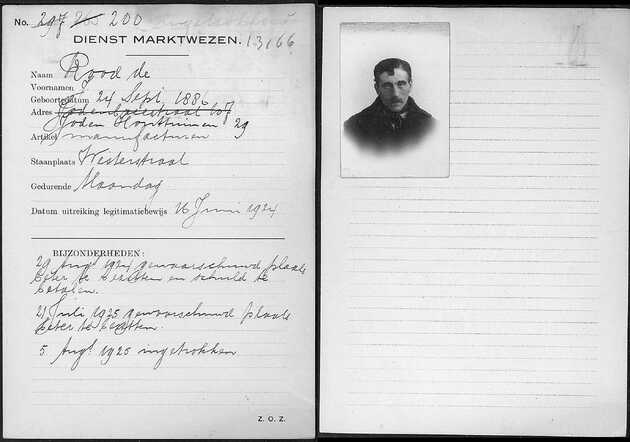 No. 297 200 ingetrokken
DIENST MARKTWEZEN. 13166
Naam Rood de
Voornamen J
Geboortedatum 24 Sept. 1886
Adres Jodenbreestraat 107
Joden Houttuinen 29
Artikel manufacturen
Staanplaats Westerstraat
Gedurende Maandag
Datum uitreiking legitimatiebewijs 16 Juni 1924
BIJZONDERHEDEN:
29 Augt 1924 gewaarschuwd plaats
beter te bezetten en schuld te
betalen.
21 Juli 1925 gewaarschuwd plaats
beter te bezetten.
5 Augt 1925 ingetrokken.
Z. O. Z.